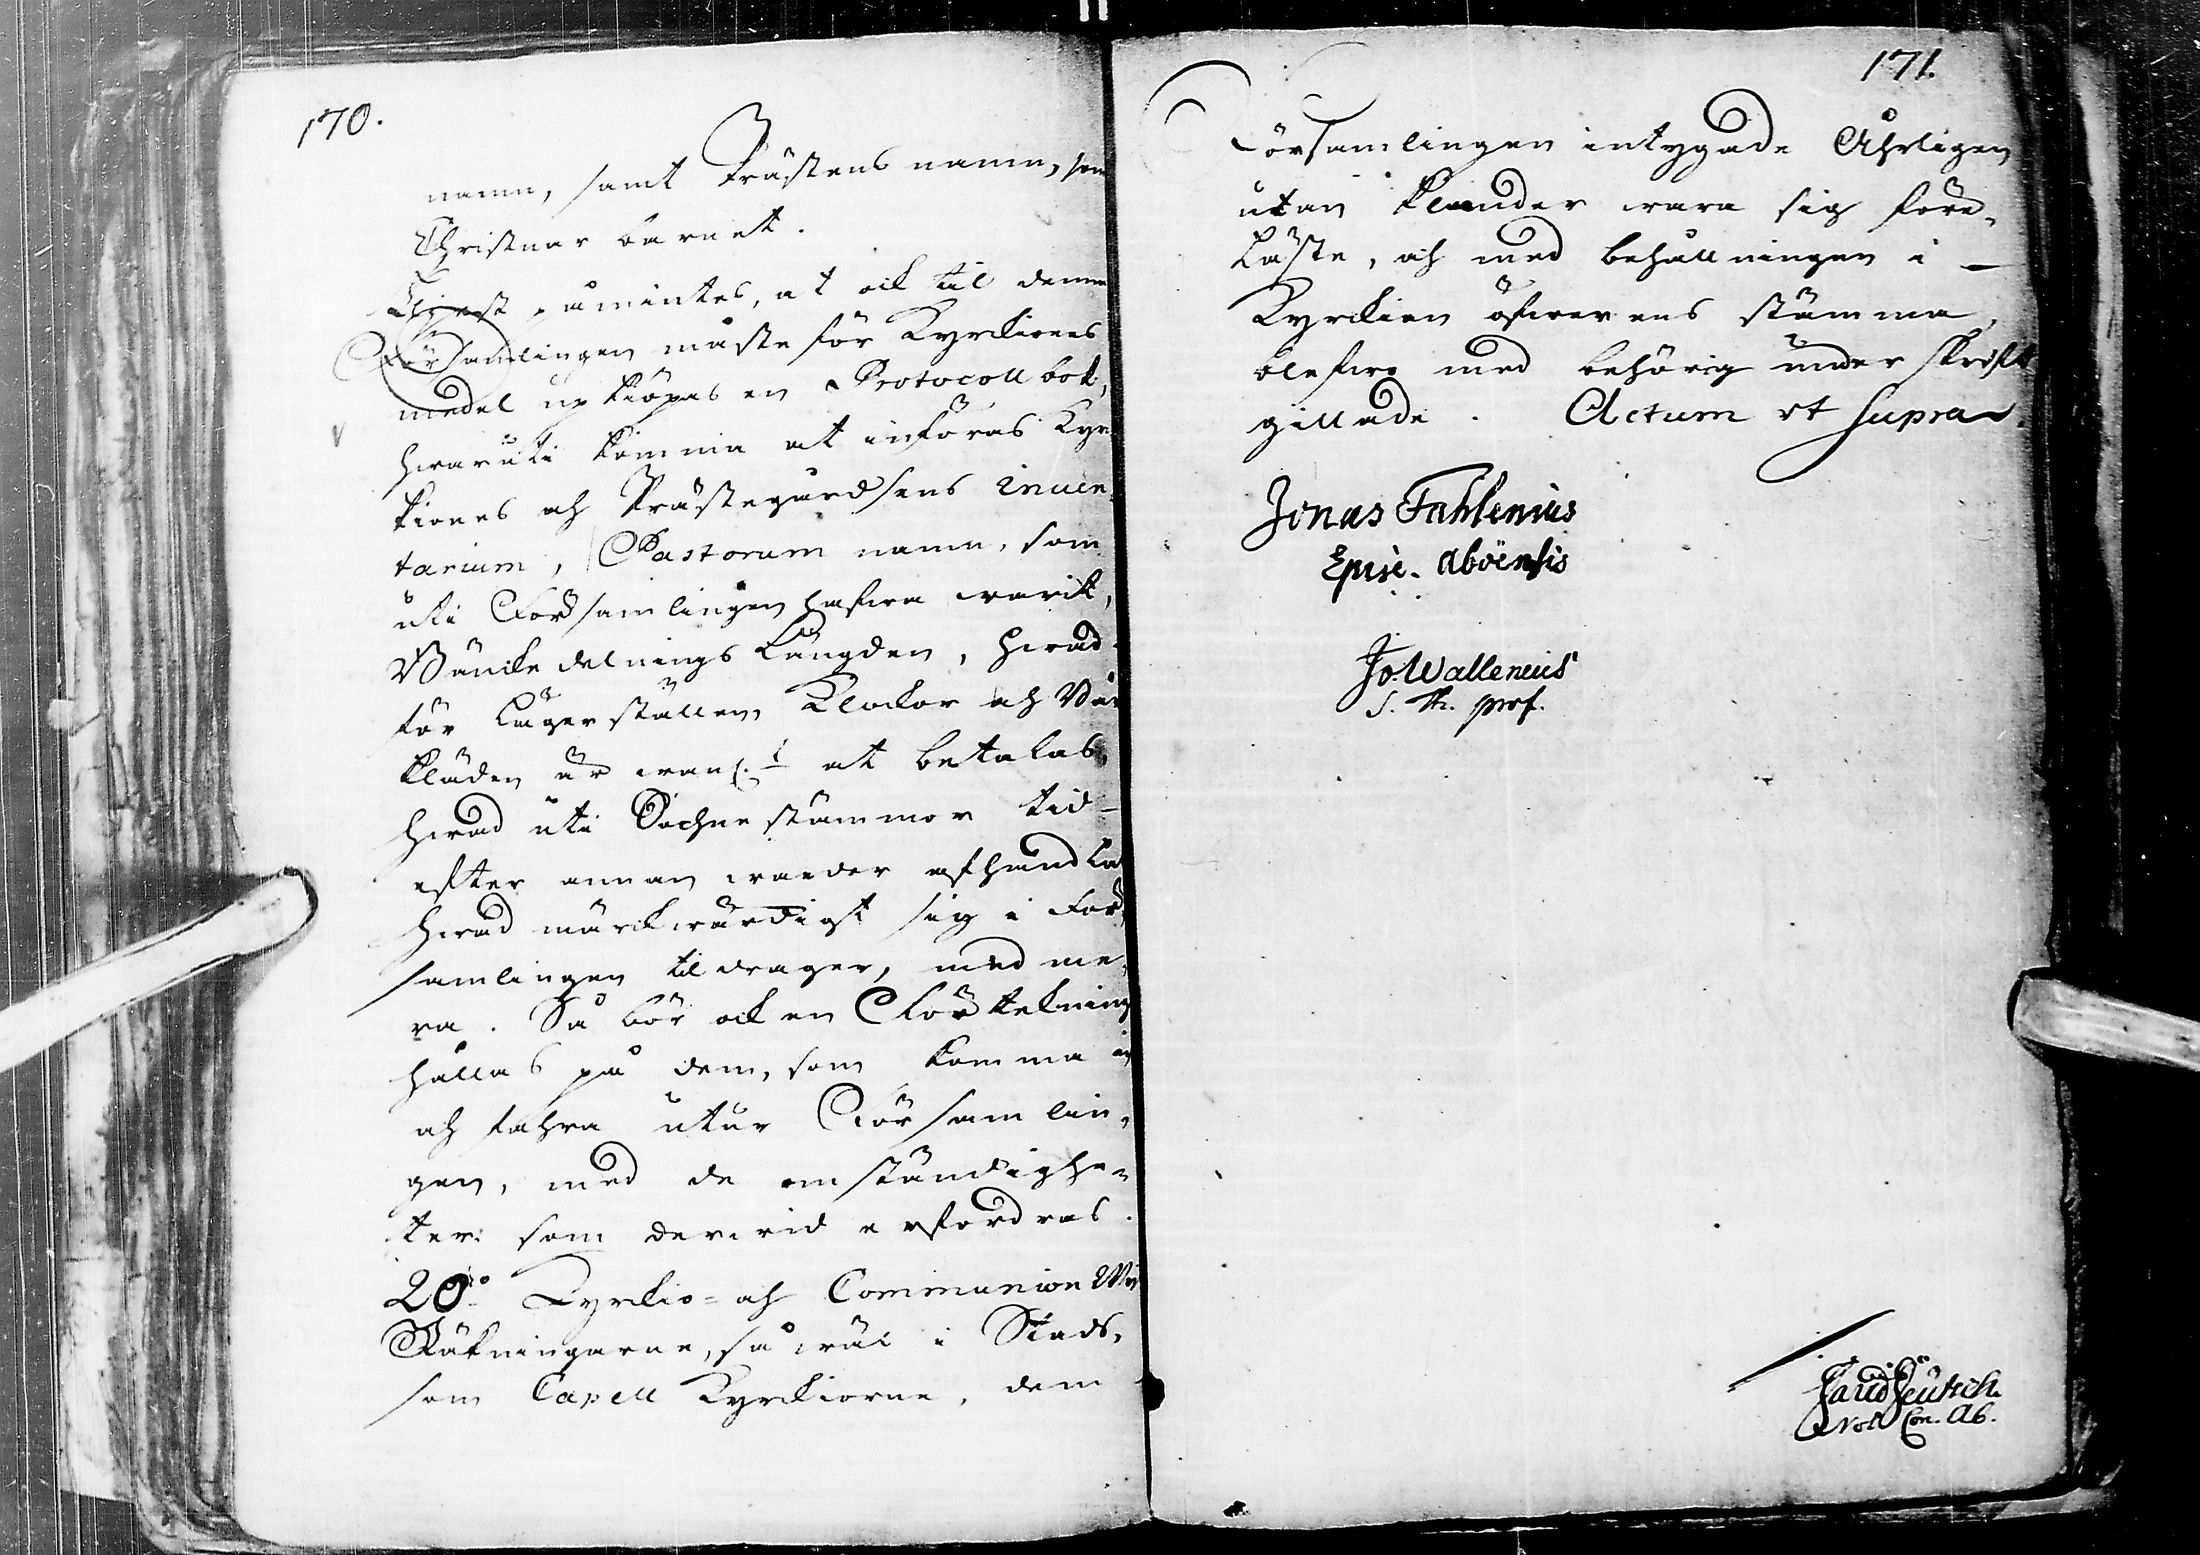 170.
namn, samt Prästens namn, som
Christnar barnet.
Ehjest påmintes, at ock til denna
Församlingen måste för Kyrckiones
medel upkiöpas en Protocoll bok,
hwaruti komma at införas Kyr-
kiones och Prästegårdsens inven-
tarium, Pastorum namn, som
uti Församlingen hafwa warit,
Bänckedelnings Längden, hwad
för Lägerställen, Klockor och Bår
kläden är wanl.t at betalas,
hwad uti Sochnestämmor tid
efter annan warder afhandlat
hwad märckwärdigt sig i För-
samlingen tildrager, med me-
ra. Så bör ock en Förtekning
hållas på dem, som komma in
och fahra utur Församlin-
gen, med de omständighe-
ter som derwid erfordras.
20:o Kyrckio- och Communion Win
Räkningarne, så wäl i Stads-
som Capell Kyrckiorne, dem
171.
Församlingen intygade Åhrligen
utan klander wara sig före-
läste, och med behållningen i
Kyrckian öfwerens stämma,
blefwo med behörig underskrift
gillade. Actum ut Supra.
Jonas Fahlenius
Episc. Aboënsis
Jo. Wallenius
S. Th. prof.
Not. Con. Ab.